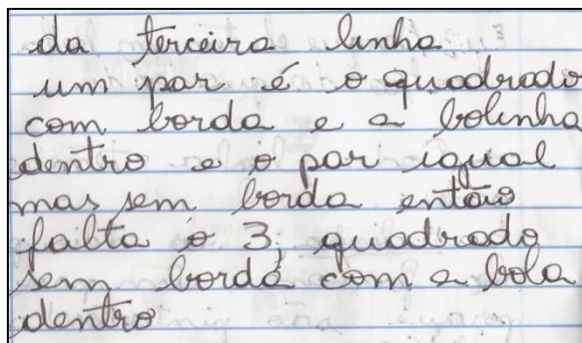 da terceira linha
um par é o quadrado
com borda e a bolinha
dentro e o par igual
mas sem borda então
falta o 3, quadrado
sem borda com a bola
dentro